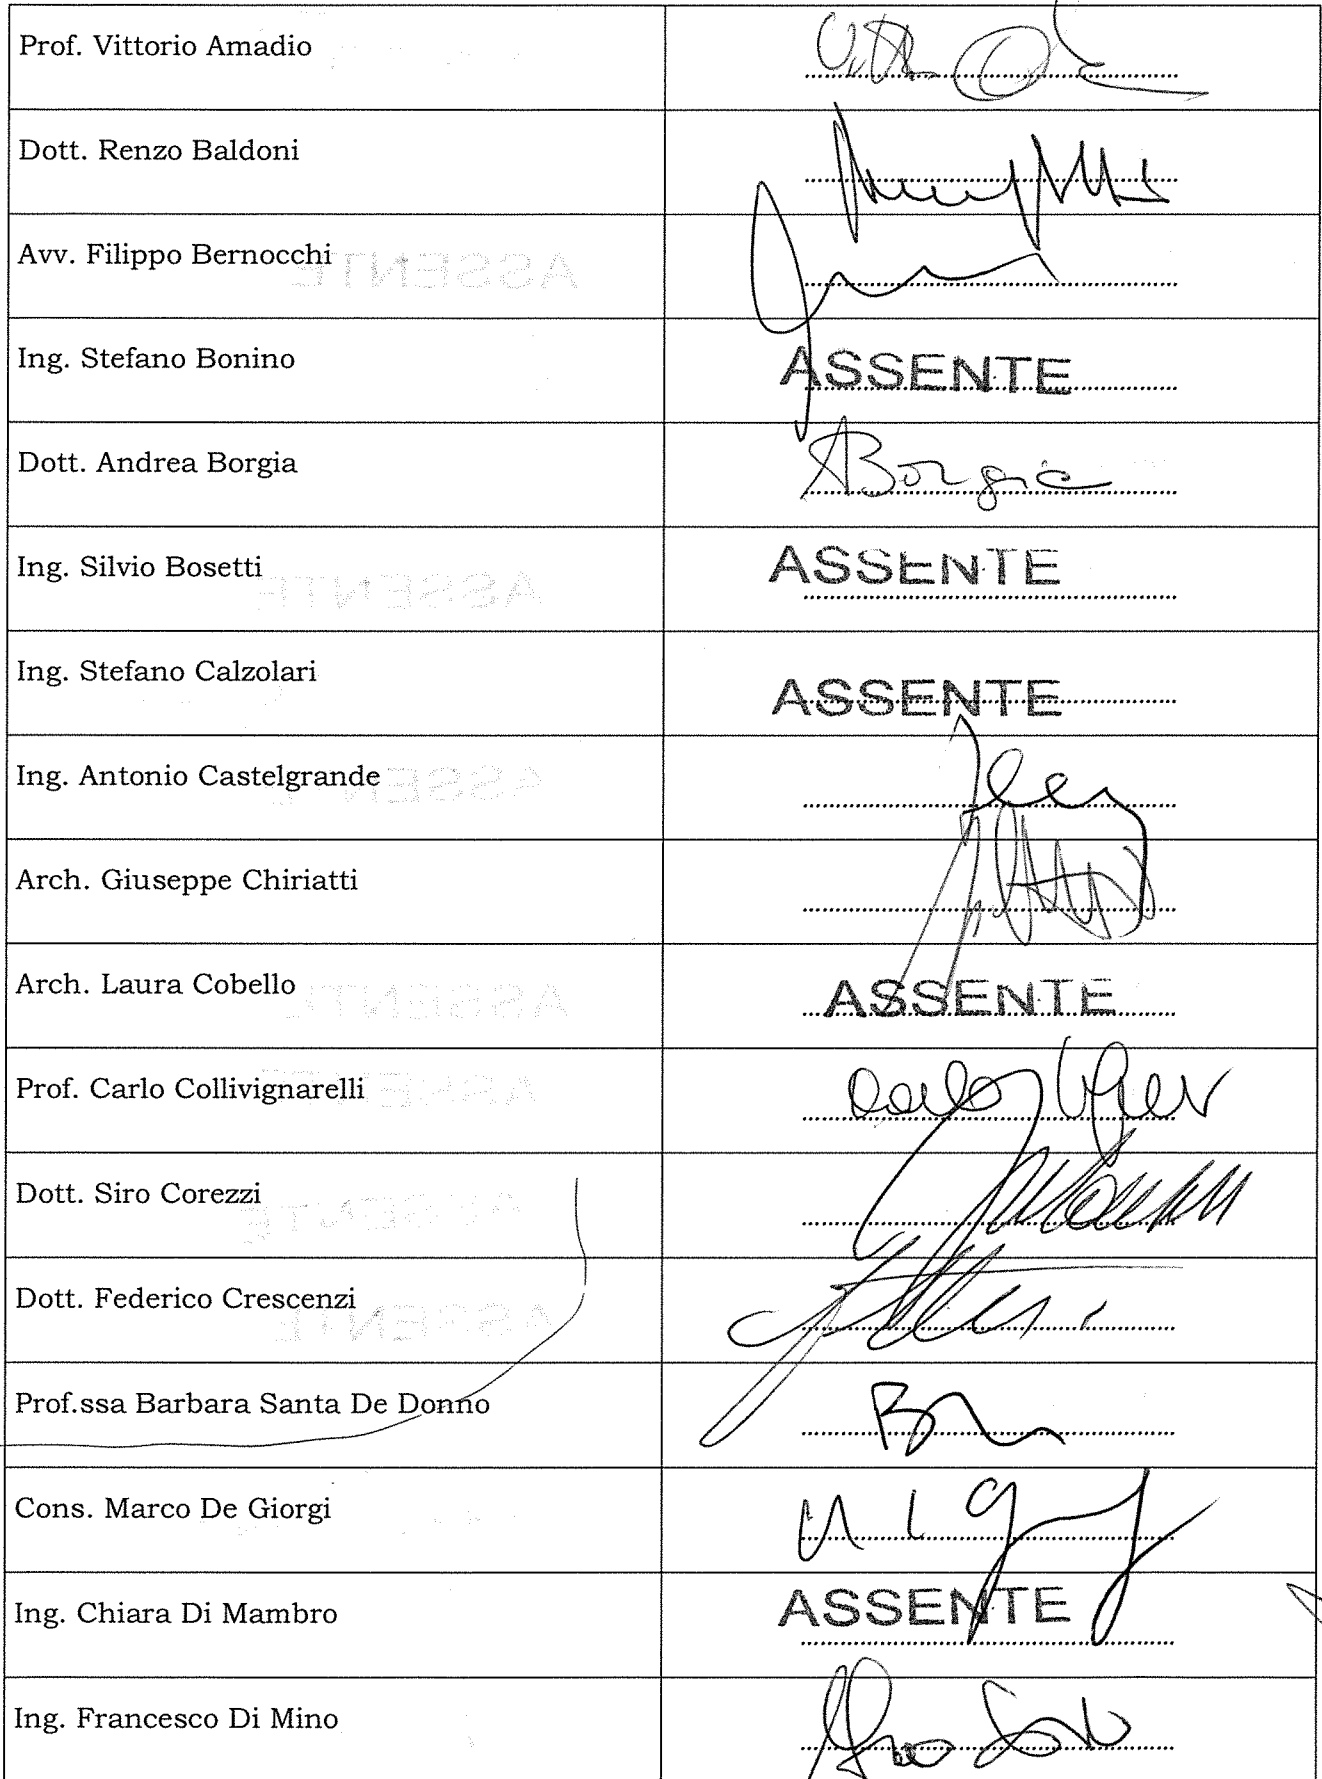 Prof. Vittorio Amadio
Dott. Renzo Baldoni
Avv. Filippo Bernocchi
Ing. Stefano Bonino ASSENTE
Dott. Andrea Borgia ABorgia
Ing. Silvio Bosetti ASSENTE
Ing. Stefano Calzolari ASSENTE
Ing. Antonio Castelgrande
Arch. Giuseppe Chiriatti
Arch. Laura Cobello ASSENTE
Prof. Carlo Collivignarelli
Dott. Siro Corezzi
Dott. Federico Crescenzi
Prof.ssa Barbara Santa De Donno
Cons. Marco De Giorgi
Ing. Chiara Di Mambro ASSENTE
Ing. Francesco Di Mino